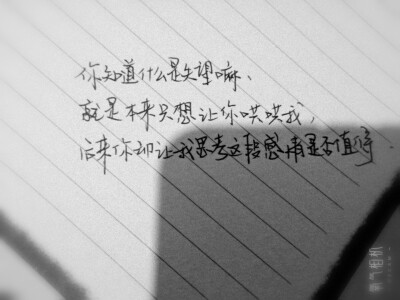 你知道什么是失望嘛、
就是本来只想让你哄哄我，
后来你却让我思考这段感情是否值得.